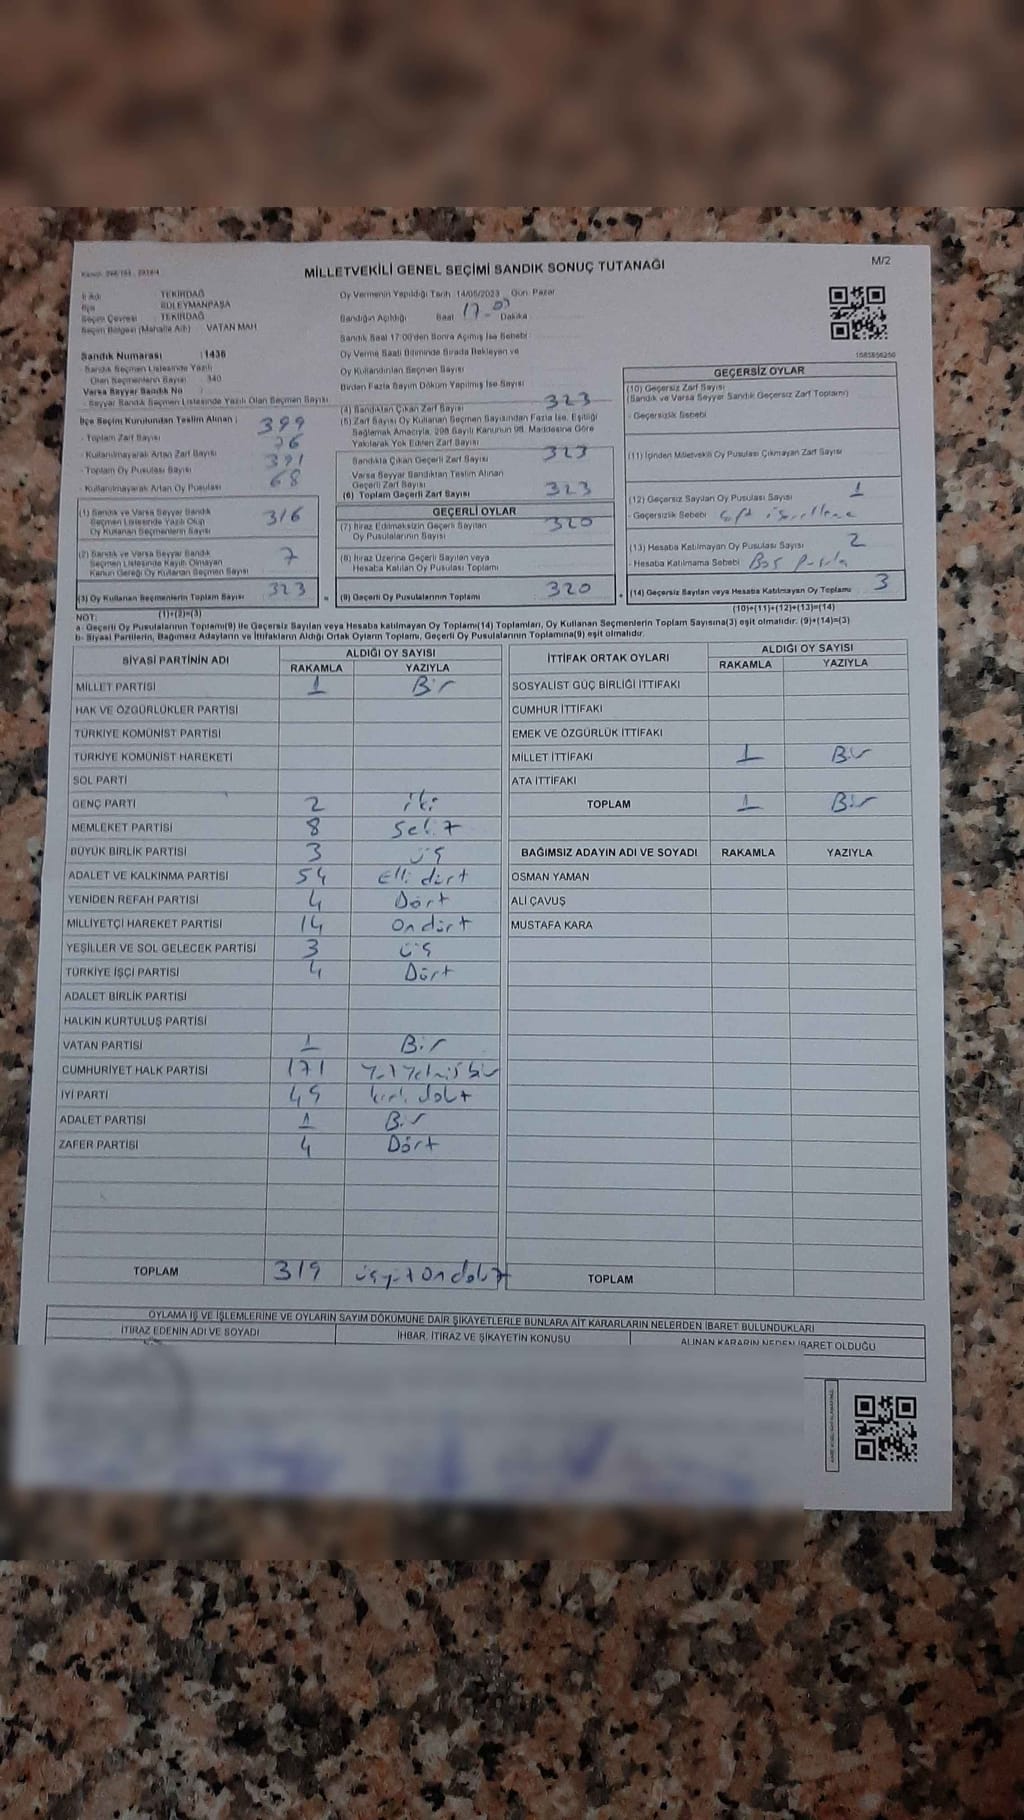 MİLLETVEKİLİ GENEL SEÇİMİ SANDIK SONUÇ TUTANAĞI
M/2
İl Adı : TEKİRDAĞ
İlçe : SÜLEYMANPAŞA
Seçim Çevresi : TEKİRDAĞ
Seçim Bölgesi (Mahalle Adı) : VATAN MAH
Sandık Numarası : 1436
Sandık Seçmen Listesinde Yazılı
Olan Seçmenlerin Sayısı 340
Varsa Seyyar Sandık No
- Seyyar Sandık Seçmen Listesinde Yazılı Olan Seçmen Sayısı
İlçe Seçim Kurulundan Teslim Alınan :
- Toplam Zarf Sayısı 399
- Kullanılmayarak Artan Zarf Sayısı 76
- Toplam Oy Pusulası Sayısı 391
- Kullanılmayarak Artan Oy Pusulası 68
(1) Sandık ve Varsa Seyyar Sandık
Seçmen Listesinde Yazılı Olup
Oy Kullanan Seçmenlerin Sayısı 316
(2) Sandık ve Varsa Seyyar Sandık
Seçmen Listesinde Kayıtlı Olmayan
Kanun Gereği Oy Kullanan Seçmen Sayısı 7
(3) Oy Kullanan Seçmenlerin Toplam Sayısı 323
(1)+(2)=(3)
Oy Vermenin Yapıldığı Tarih :14/05/2023 Gün: Pazar
Sandığın Açıldığı Saat 17 Dakika
Sandık Saat 17:00'den Sonra Açılmış İse Sebebi
Oy Verme Saati Bitiminde Sırada Bekleyen ve
Oy Kullandırılan Seçmen Sayısı
Birden Fazla Sayım Döküm Yapılmış İse Sayısı
(4) Sandıktan Çıkan Zarf Sayısı 323
(5) Zarf Sayısı Oy Kullanan Seçmen Sayısından Fazla İse, Eşitliği
Sağlamak Amacıyla, 298 Sayılı Kanunun 98. Maddesine Göre
Yakılarak Yok Edilen Zarf Sayısı
Sandıkta Çıkan Geçerli Zarf Sayısı 323
Varsa Seyyar Sandıktan Teslim Alınan
Geçerli Zarf Sayısı
(6) Toplam Geçerli Zarf Sayısı 323
GEÇERLİ OYLAR
(7) İtiraz Edilmeksizin Geçerli Sayılan
Oy Pusulalarının Sayısı 320
(8) İtiraz Üzerine Geçerli Sayılan veya
Hesaba Katılan Oy Pusulası Toplamı
(9) Geçerli Oy Pusulalarının Toplamı 320
GEÇERSİZ OYLAR
(10) Geçersiz Zarf Sayısı
(Sandık ve Varsa Seyyar Sandık Geçersiz Zarf Toplamı)
- Geçersizlik Sebebi
(11) İçinden Milletvekili Oy Pusulası Çıkmayan Zarf Sayısı
(12) Geçersiz Sayılan Oy Pusulası Sayısı 1
- Geçersizlik Sebebi
(13) Hesaba Katılmayan Oy Pusulası Sayısı 2
- Hesaba Katılmama Sebebi Boş Pusula
(14) Geçersiz Sayılan veya Hesaba Katılmayan Oy Toplamı 3
(10)+(11)+(12)+(13)=(14)
NOT:
a- Geçerli Oy Pusulalarının Toplamı(9) ile Geçersiz Sayılan veya Hesaba katılmayan Oy Toplamı(14) Toplamları, Oy Kullanan Seçmenlerin Toplam Sayısına(3) eşit olmalıdır. (9)+(14)=(3)
b- Siyasi Partilerin, Bağımsız Adayların ve İttifakların Aldığı Ortak Oyların Toplamı, Geçerli Oy Pusulalarının Toplamına(9) eşit olmalıdır.
SİYASİ PARTİNİN ADI ALDIĞI OY SAYISI
RAKAMLA YAZIYLA
MİLLET PARTİSİ 1 Bir
HAK VE ÖZGÜRLÜKLER PARTİSİ
TÜRKİYE KOMÜNİST PARTİSİ
TÜRKİYE KOMÜNİST HAREKETİ
SOL PARTİ
GENÇ PARTİ 2 iki
MEMLEKET PARTİSİ 8 Sekiz
BÜYÜK BİRLİK PARTİSİ 3 üç
ADALET VE KALKINMA PARTİSİ 54 Elli dört
YENİDEN REFAH PARTİSİ 4 Dört
MİLLİYETÇİ HAREKET PARTİSİ 14 On dört
YEŞİLLER VE SOL GELECEK PARTİSİ 3 üç
TÜRKİYE İŞÇİ PARTİSİ 4 Dört
ADALET BİRLİK PARTİSİ
HALKIN KURTULUŞ PARTİSİ
VATAN PARTİSİ 1 Bir
CUMHURİYET HALK PARTİSİ 171
İYİ PARTİ 49
ADALET PARTİSİ 1 Bir
ZAFER PARTİSİ 4 Dört
TOPLAM 319
İTTİFAK ORTAK OYLARI ALDIĞI OY SAYISI
RAKAMLA YAZIYLA
SOSYALİST GÜÇ BİRLİĞİ İTTİFAKI
CUMHUR İTTİFAKI
EMEK VE ÖZGÜRLÜK İTTİFAKI
MİLLET İTTİFAKI 1 Bir
ATA İTTİFAKI
TOPLAM 1 Bir
BAĞIMSIZ ADAYIN ADI VE SOYADI RAKAMLA YAZIYLA
OSMAN YAMAN
ALİ ÇAVUŞ
MUSTAFA KARA
TOPLAM
OYLAMA İŞ VE İŞLEMLERİNE VE OYLARIN SAYIM DÖKÜMÜNE DAİR ŞİKAYETLERLE BUNLARA AİT KARARLARIN NELERDEN İBARET BULUNDUKLARI
İTİRAZ EDENİN ADI VE SOYADI İHBAR, İTİRAZ VE ŞİKAYETİN KONUSU ALINAN KARARIN NEDEN İBARET OLDUĞU